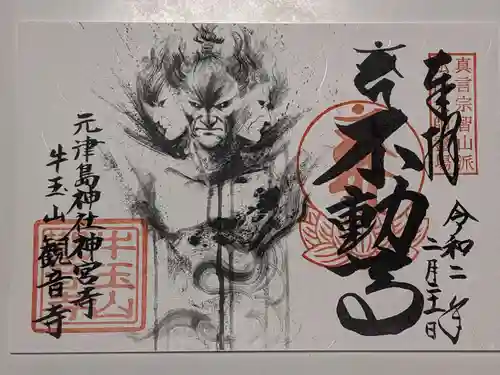 奉拝
真言宗智山派
令和二年
二月二十一日
不動
元津島神社神宮寺
牛玉山
観音寺
牛玉山